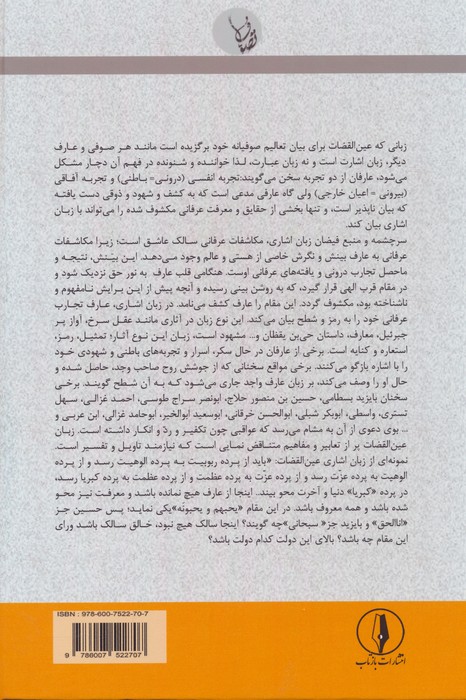 زبانی که عین‌القضات برای بیان تعالیم صوفیانه خود برگزیده است مانند هر صوفی و عارف
دیگر، زبان اشارت است و نه زبان عبارت، لذا خواننده و شنونده در فهم آن دچار مشکل
می‌شود، عارفان از دو تجربه سخن می‌گویند:تجربه انفسی (درونی= باطنی) و تجربه آفاقی
(بیرونی = اعیان خارجی) ولی گاه عارفی مدعی است که به کشف و شهود و ذوقی دست یافته
که بیان ناپذیر است، و تنها بخشی از حقایق و معرفت عرفانی مکشوف شده را می‌تواند با زبان
اشاری بیان کند.
سرچشمه و منبع فیضان زبان اشاری، مکاشفات عرفانی سالک عاشق است؛ زیرا مکاشفات
عرفانی به عارف بینش و نگرش خاصی از هستی و عالم وجود می‌دهد. این بینش، نتیجه و
ماحصل تجارب درونی و یافته‌های عرفانی اوست. هنگامی قلب عارف به نور حق نزدیک شود و در
مقام قرب الهی قرار گیرد، که به روشن بینی رسیده و آنچه پیش از این برایش نامفهوم و
ناشناخته بود، مکشوف گردد. این مقام را عارف کشف می‌نامد. در زبان اشاری، عارف تجارب
عرفانی خود را به رمز و شطح بیان می‌کند. این نوع زبان در آثاری مانند عقل سرخ، آواز پر
جبرئیل، معارف، داستان حی‌بن یقظان و... مشهود است، زبان این نوع آثار؛ تمثیل، رمز،
استعاره و کنایه است. برخی از عارفان در حال سکر، اسرار و تجربه‌های باطنی و شهودی خود
را با اشاره بازگو می‌کنند. برخی مواقع سخنانی که از جوشش روح صاحب وجد، حاصل شده و
حال او را وصف می‌کند، بر زبان عارف واجد جاری می‌شود که به آن شطح گویند. برخی
سخنان بایزید بسطامی، حسین بن منصور حلاج، ابونصر سراج طوسی، احمد غزالی، سهل
تستری، واسطی، ابوبکر شبلی، ابوالحسن خرقانی، ابوسعید ابوالخیر، ابوحامد غزالی، ابن عربی و
... بوی دعوی از آن به مشام می‌رسد که عواقبی چون تکفیر و ردّ و انکار داشته است. زبان
عین‌القضات پر از تعابیر و مفاهیم متناقض نمایی است که نیازمند تاویل و تفسیر است.
نمونه‌ای از زبان اشاری عین‌القضات: «باید از پرده ربوبیت به پرده الوهیت رسد و از پرده
الوهیت به پرده عزّت رسد و از پرده عزّت به پرده عظمت و از پرده عظمت به پرده کبریا رسد،
در پرده «کبریا» دنیا و آخرت محو بیند.. اینجا از عارف هیچ نمانده باشد و معرفت نیز محو
شده باشد و همه معروف باشد. در این مقام «یحبهم و یحبونه»یکی نماید؛ پس حسین جز
«اناالحق» و بایزید جز« سبحانی»چه گویند؟ اینجا سالک هیچ نبود، خالق سالک باشد ورای
این مقام چه باشد؟ بالای این دولت کدام دولت باشد؟
ISBN : 978-600-7522-70-7
9 786007 522707
انتشارات بازتاب